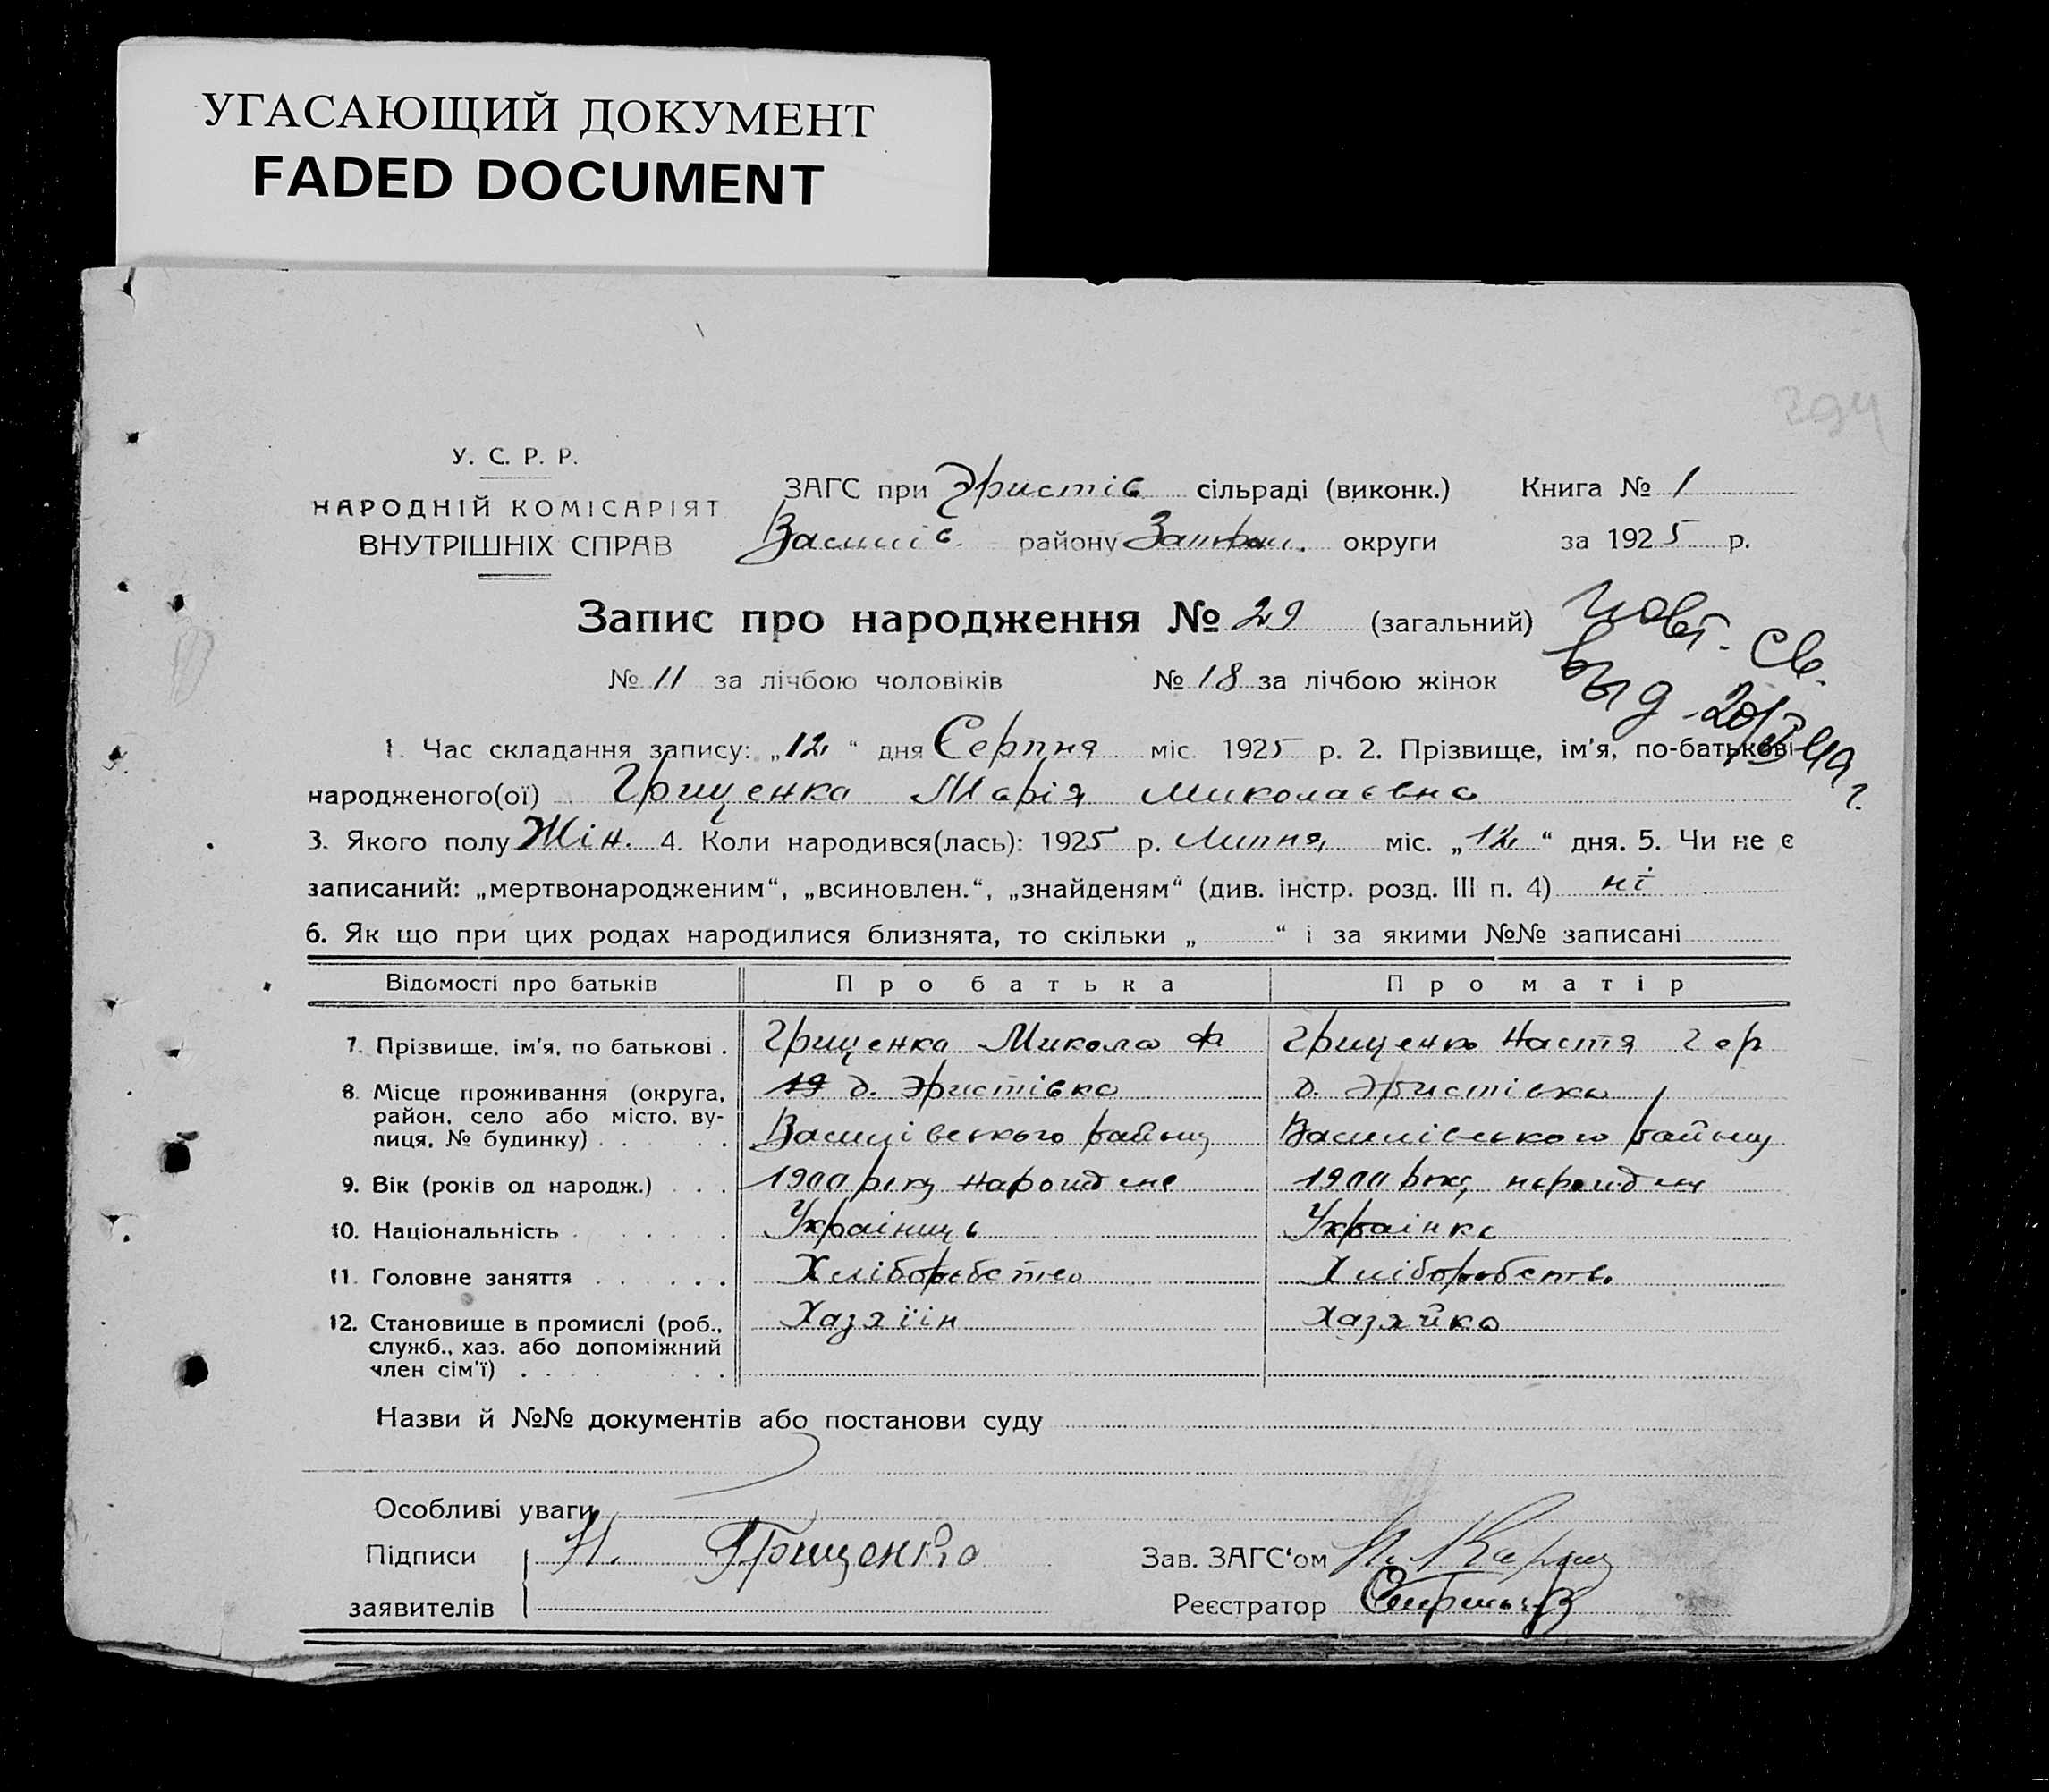 УГАСАЮЩИЙ ДОКУМЕНТ
FADED DOCUMENT
294
У. С. Р. Р.
НАРОДНІЙ КОМІСАРІЯТ
ВНУТРІШНІХ СПРАВ
ЗАГС при Эристів сільраді (виконк.) Книга № 1
району округи за 1925 р.
Запис про народження № 29 (загальний)
№ 11 за лічбою чоловіків № 18 за лічбою жінок
св.
выд. 20/
1. Час складання запису: „12“ дня Серпня міс. 1925 р. 2. Прізвище, ім'я, по-батькові
народженого(ої) Грищенко Марія Миколаєвна
3. Якого полу Жін. 4. Коли народився(лась): 1925 р. Липня міс. „12“ дня. 5. Чи не є
записаний: „мертвонародженим“, „всиновлен.“, „знайденям“ (див. інстр. розд. III п. 4) ні
6. Як що при цих родах народилися близнята, то скільки „ “ і за якими №№ записані
Відомості про батьків Про батька Про матір
7. Прізвище, ім'я, по батькові . Грищенко Микола Ф Грищенко Настя Гор
8. Місце проживання (округа, 19 д. Эристівка д. Эристівка
район, село або місто, ву-
лиця, № будинку) . Василівського району Василівського району
9. Вік (років од народж.) . . . 1900 року 1900 року
10. Національність . Українець Українка
11. Головне заняття . Хліборобство Хліборобство
12. Становище в промислі (роб., Хазяїін Хазяйка
служб., хаз. або допоміжний
член сім'ї) .
Назви й №№ документів або постанови суду
Особливі уваги
Підписи Н. Грищенко Зав. ЗАГС'ом
заявителів Реєстратор